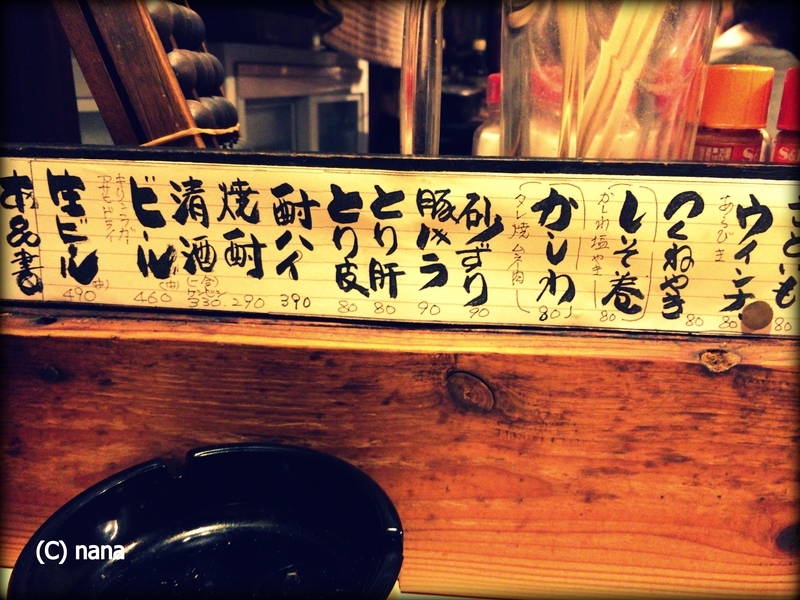 お品書
生ビール
(中)
490
アサヒドライ
キリンラガー
ビール
(中)
460
清酒
(一合)
330
焼酎
290
酎ハイ
390
とり皮
80
とり肝
80
豚バラ
90
砂ずり
90
かしわ
(タレ焼 ムネ肉)
80
しそ巻
(かしわ塩やき)
80
つくねやき
80
ウインナー
あらびき
80
さといも
80
S&B
(C) nana